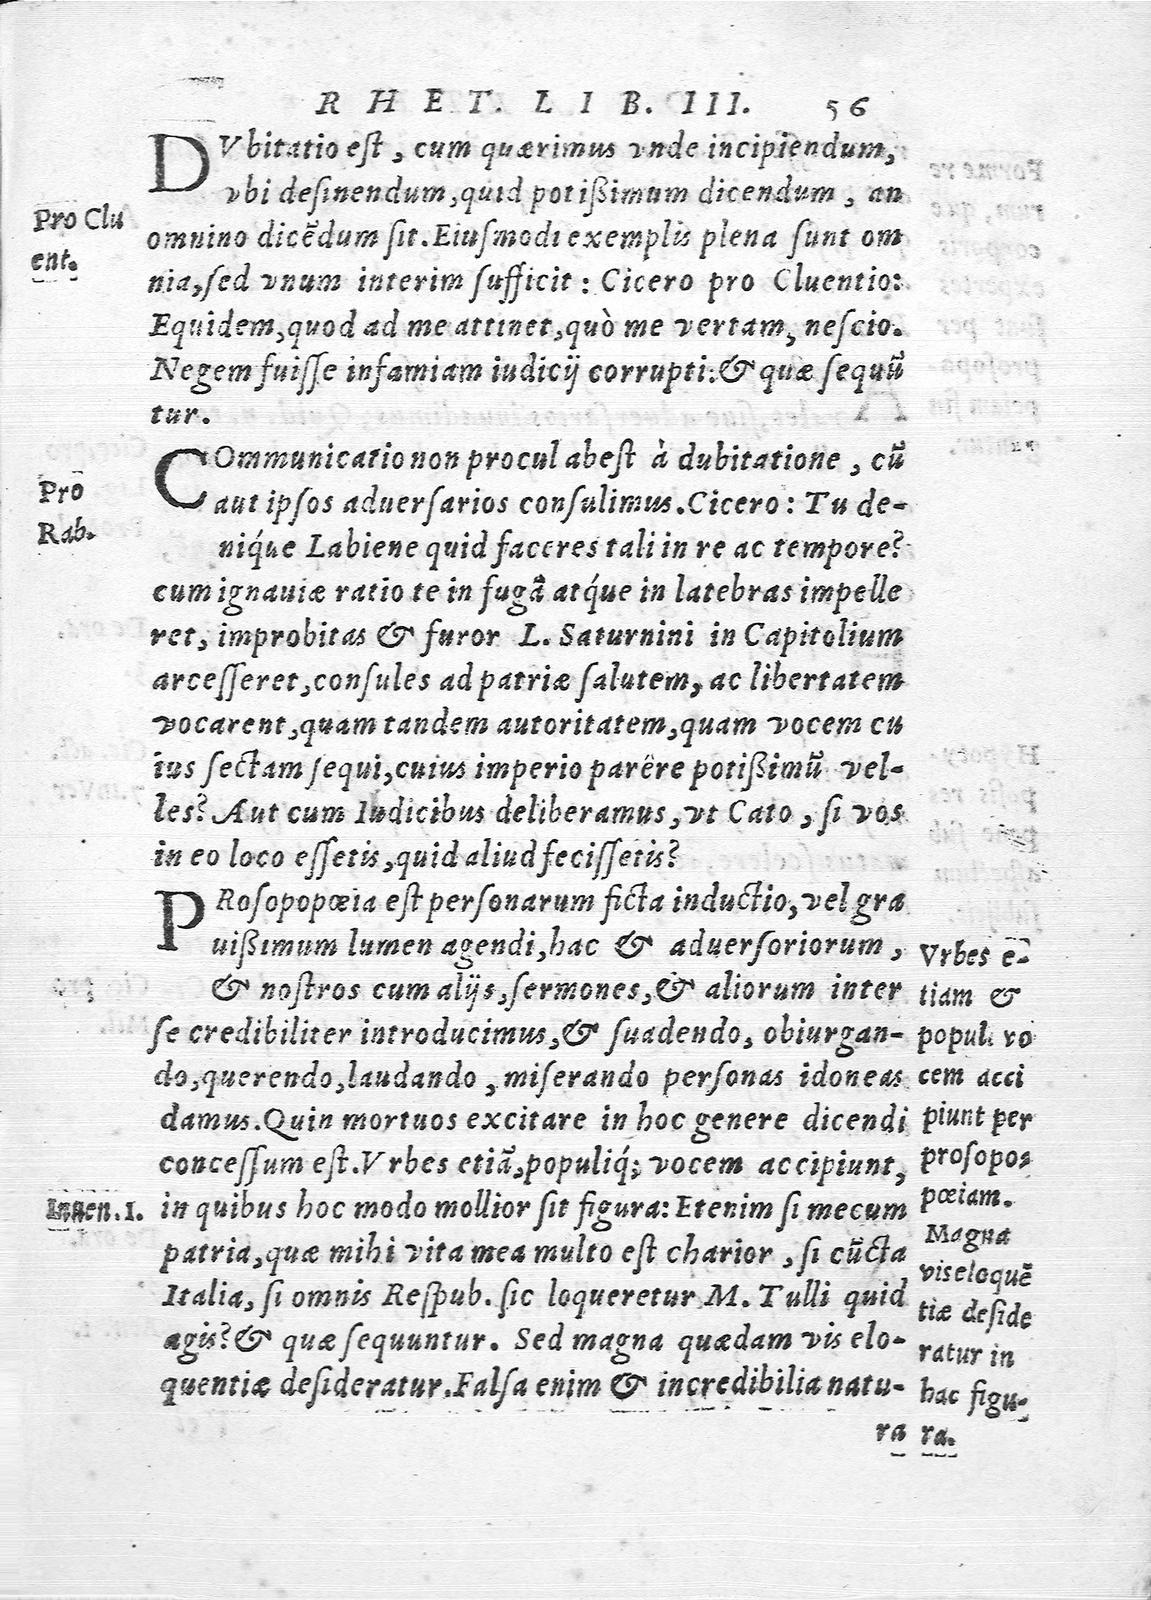 RHET. LIB. III. 56
DVbitatio est, cum quærimus vnde incipiendum,
vbi desinendum, quid potißimum dicendum, an
Pro Clu
ent.
omnino dicēdum sit. Eiusmodi exemplis plena sunt om
nia, sed vnum interim sufficit: Cicero pro Cluentio:
Equidem, quod ad me attinet, quò me vertam, nescio.
Negem fuisse infamiam iudicij corrupti: & quæ sequū
tur.
COmmunicatio non procul abest à dubitatione, cū
aut ipsos aduersarios consulimus. Cicero: Tu de-
Pro
Rab.
niq́ue Labiene quid faceres tali in re ac tempore?
cum ignauiæ ratio te in fugā atq́ue in latebras impelle
ret, improbitas & furor L. Saturnini in Capitolium
arcesseret, consules ad patriæ salutem, ac libertatem
vocarent, quam tandem autoritatem, quam vocem cu
ius sectam sequi, cuius imperio parêre potißimū vel-
les? Aut cum Iudicibus deliberamus, vt Cato, si vos
in eo loco essetis, quid aliud fecissetis?
PRosopopœia est personarum ficta inductio, vel gra
uißimum lumen agendi, hac & aduersoriorum,
& nostros cum alijs, sermones, & aliorum inter
se credibiliter introducimus, & suadendo, obiurgan-
do, querendo, laudando, miserando personas idoneas
damus. Quin mortuos excitare in hoc genere dicendi
concessum est. Vrbes etiā, populiq́; vocem accipiunt,
in quibus hoc modo mollior sit figura: Etenim si mecum
patria, quæ mihi vita mea multo est charior, si cūcta
Italia, si omnis Respub. sic loqueretur M. Tulli quid
agis? & quæ sequuntur. Sed magna quædam vis elo-
quentiæ desideratur. Falsa enim & incredibilia natu-
ra
Vrbes e-
tiam &
populi vo
cem acci
piunt per
prosopo-
pœiam.
Magna
vis eloquē
tiæ deside
ratur in
hac figu-
ra.